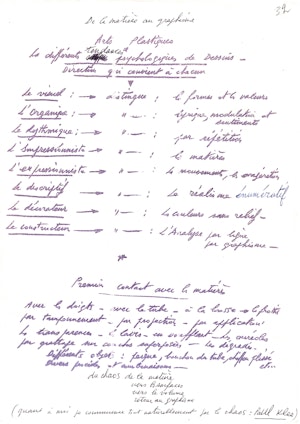 De la matière au graphisme
39
Arts Plastiques
Les différentes tendances psychologiques de Dessins -
Direction qui convient à chacun
Le visuel : → distingue → les formes et les valeurs
L'Organique : → " → lyrique, modulation et sentiments
Le Rythmique : → " → par répétition
L'Impressionniste → " → la matière
L'expressionniste → " → le mouvement, la
Le descriptif → " → le réalisme énumératif
Le décorateur → " → la couleur sans relief -
Le constructeur → " → L'Analyse par ligne
par graphisme -
Premier contact avec la matière
Avec les doigts - avec le tube - à la brosse -
par tamponnement - par projection - par application
les transparences - l'lavis -
par grattage sur couches superposées - les
Différents objets : bouchon de tube, chiffon
divers procédés et combinaisons - etc...
du chaos de la matière
vers les surfaces
vers le volume
retour au graphisme
(quant à moi je commence tout naturellement par le chaos : Paul Klee)